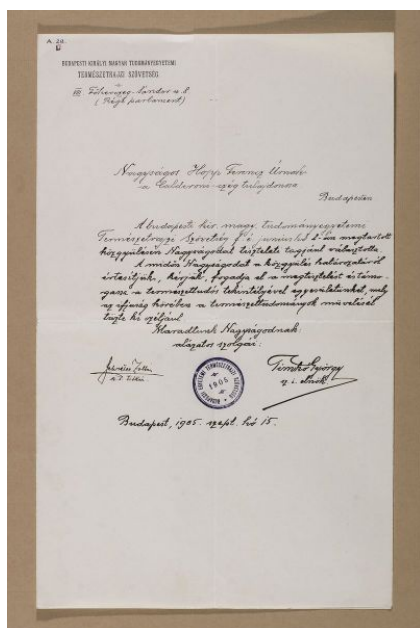 A. 20.
BUDAPESTI KIRÁLYI MAGYAR TUDOMÁNYEGYETEMI
TERMÉSZETRAJZI SZÖVETSÉG.
VIII Főherczeg Sándor u. 8
(Régi parlament)
Nagyságos Hopp Ferencz Úrnak
a Calderoni-czég tulajdonosa
Budapesten
A budapesti kir. magy. tudományegyetemi
Természetrajzi Szövetség f. é. junius hó 2-án megtartott
közgyülésén Nagyságodat tiszteleti tagjául választotta.
A midőn Nagyságodat a közgyülés határozatáról
értesítjük, kérjük, fogadja el a megtisztelést és támo-
gassa a természettudós tekintélyével egyesületünket, mely
az ifjuság körében a természettudományok művelését
tűzte ki czéljául.
Maradtunk Nagyságodnak
alázatos szolgái:
Zoltán
Timkó György
sz. i. elnök
BUDAPESTI EGYETEMI TERMÉSZETRAJZI SZÖVETSÉG
1905
Budapest, 1905. szept. hó 15.